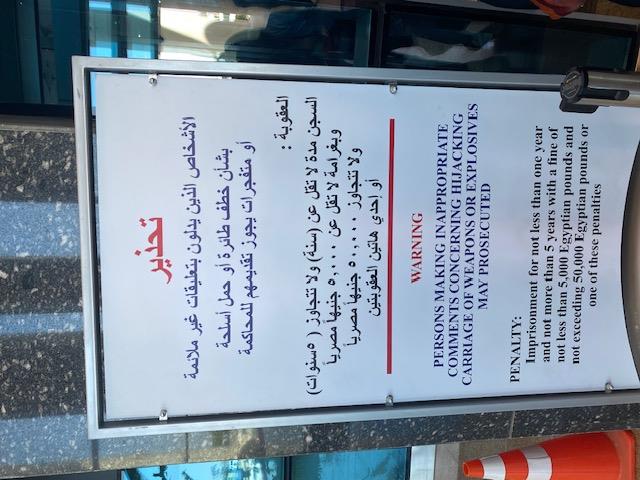 تحذير
الأشخاص الذين يدلون بتعليقات غير ملائمة
بشأن خطف طائرة أو حمل أسلحة
أو متفجرات يجوز تقديمهم للمحاكمة
العقوبة :
السجن مدة لا تقل عن (سنة) ولا تتجاوز (٥سنوات)
وبغرامة لا تقل عن ٥,٠٠٠ جنيهاً مصرياً
ولا تتجاوز ٥٠,٠٠٠ جنيهاً مصرياً
أو إحدي هاتين العقوبتين
WARNING
PERSONS MAKING INAPPROPRIATE
COMMENTS CONCERNING HIJACKING
CARRIAGE OF WEAPONS OR EXPLOSIVES
MAY PROSECUTED
PENALTY:
Imprisonment for not less than one year
and not more than 5 years with a fine of
not less than 5,000 Egyptian pounds and
not exceeding 50,000 Egyptian pounds or
one of these penalties